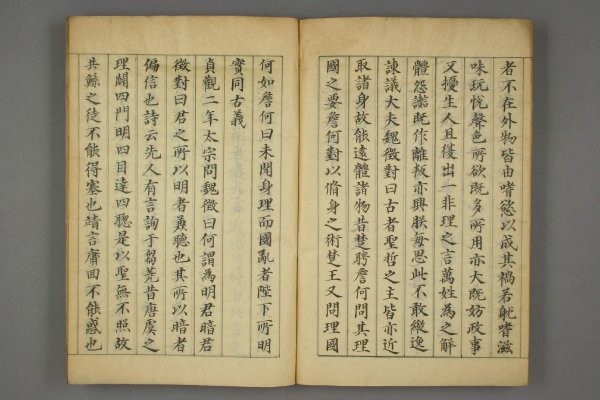 者不在外物皆由嗜慾以成其禍若躭嗜滋
味玩悅聲色所欲既多所用亦大既妨政事
又擾生人且復出一非理之言萬姓為之解
體怨讟既作離叛亦興朕每思此不敢縱逸
諫議大夫魏徵對曰古者聖哲之主皆亦近
取諸身故能遠體諸物昔楚聘詹何問其理
國之要詹何對以脩身之術楚王又問理國
何如詹何曰未聞身理而國亂者陛下所明
實同古義
貞觀二年太宗問魏徵曰何謂為明君暗君
徵對曰君之所以明者兼聽也其所以暗者
偏信也詩云先人有言詢于蒭蕘昔唐虞之
理闢四門明四目達四聰是以聖無不照故
共鯀之徒不能得塞也靖言庸回不能惑也